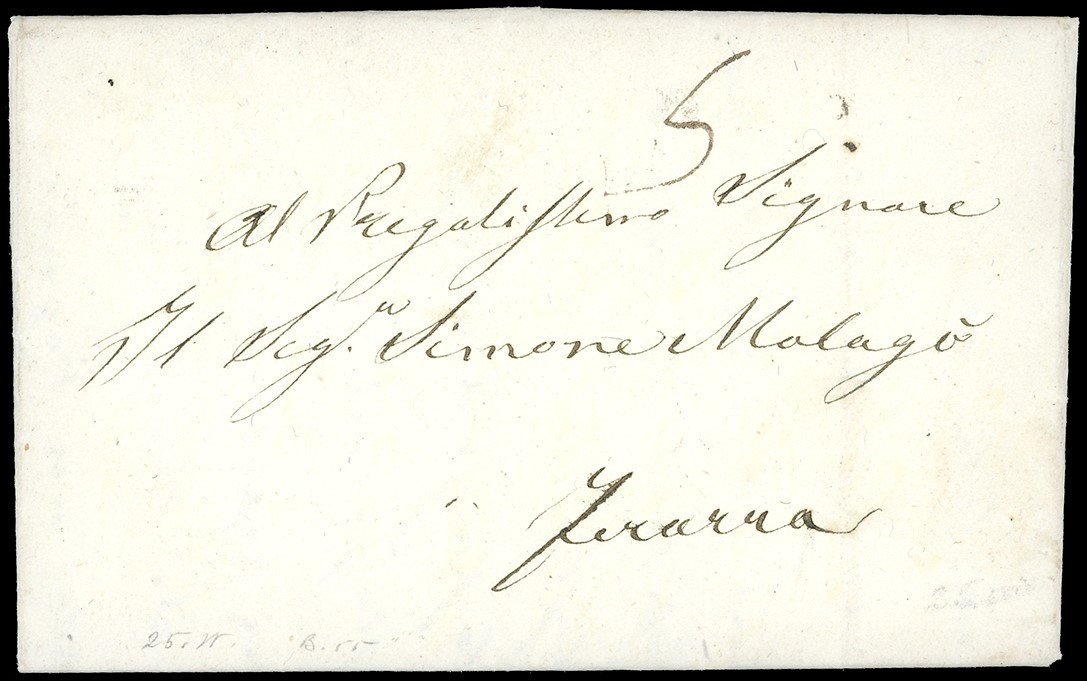 5
Al Pregatissimo Signore
Il Sigʳ. Simone Malagò
Ferarra
25. W. B. 55